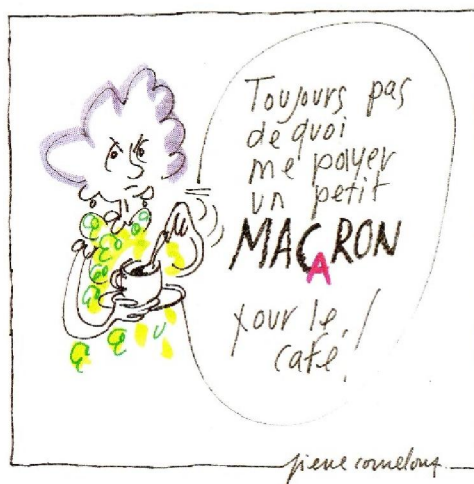 Toujours pas
de quoi
me payer
un petit
MACRON
A
pour le
café !
pierre corneloup